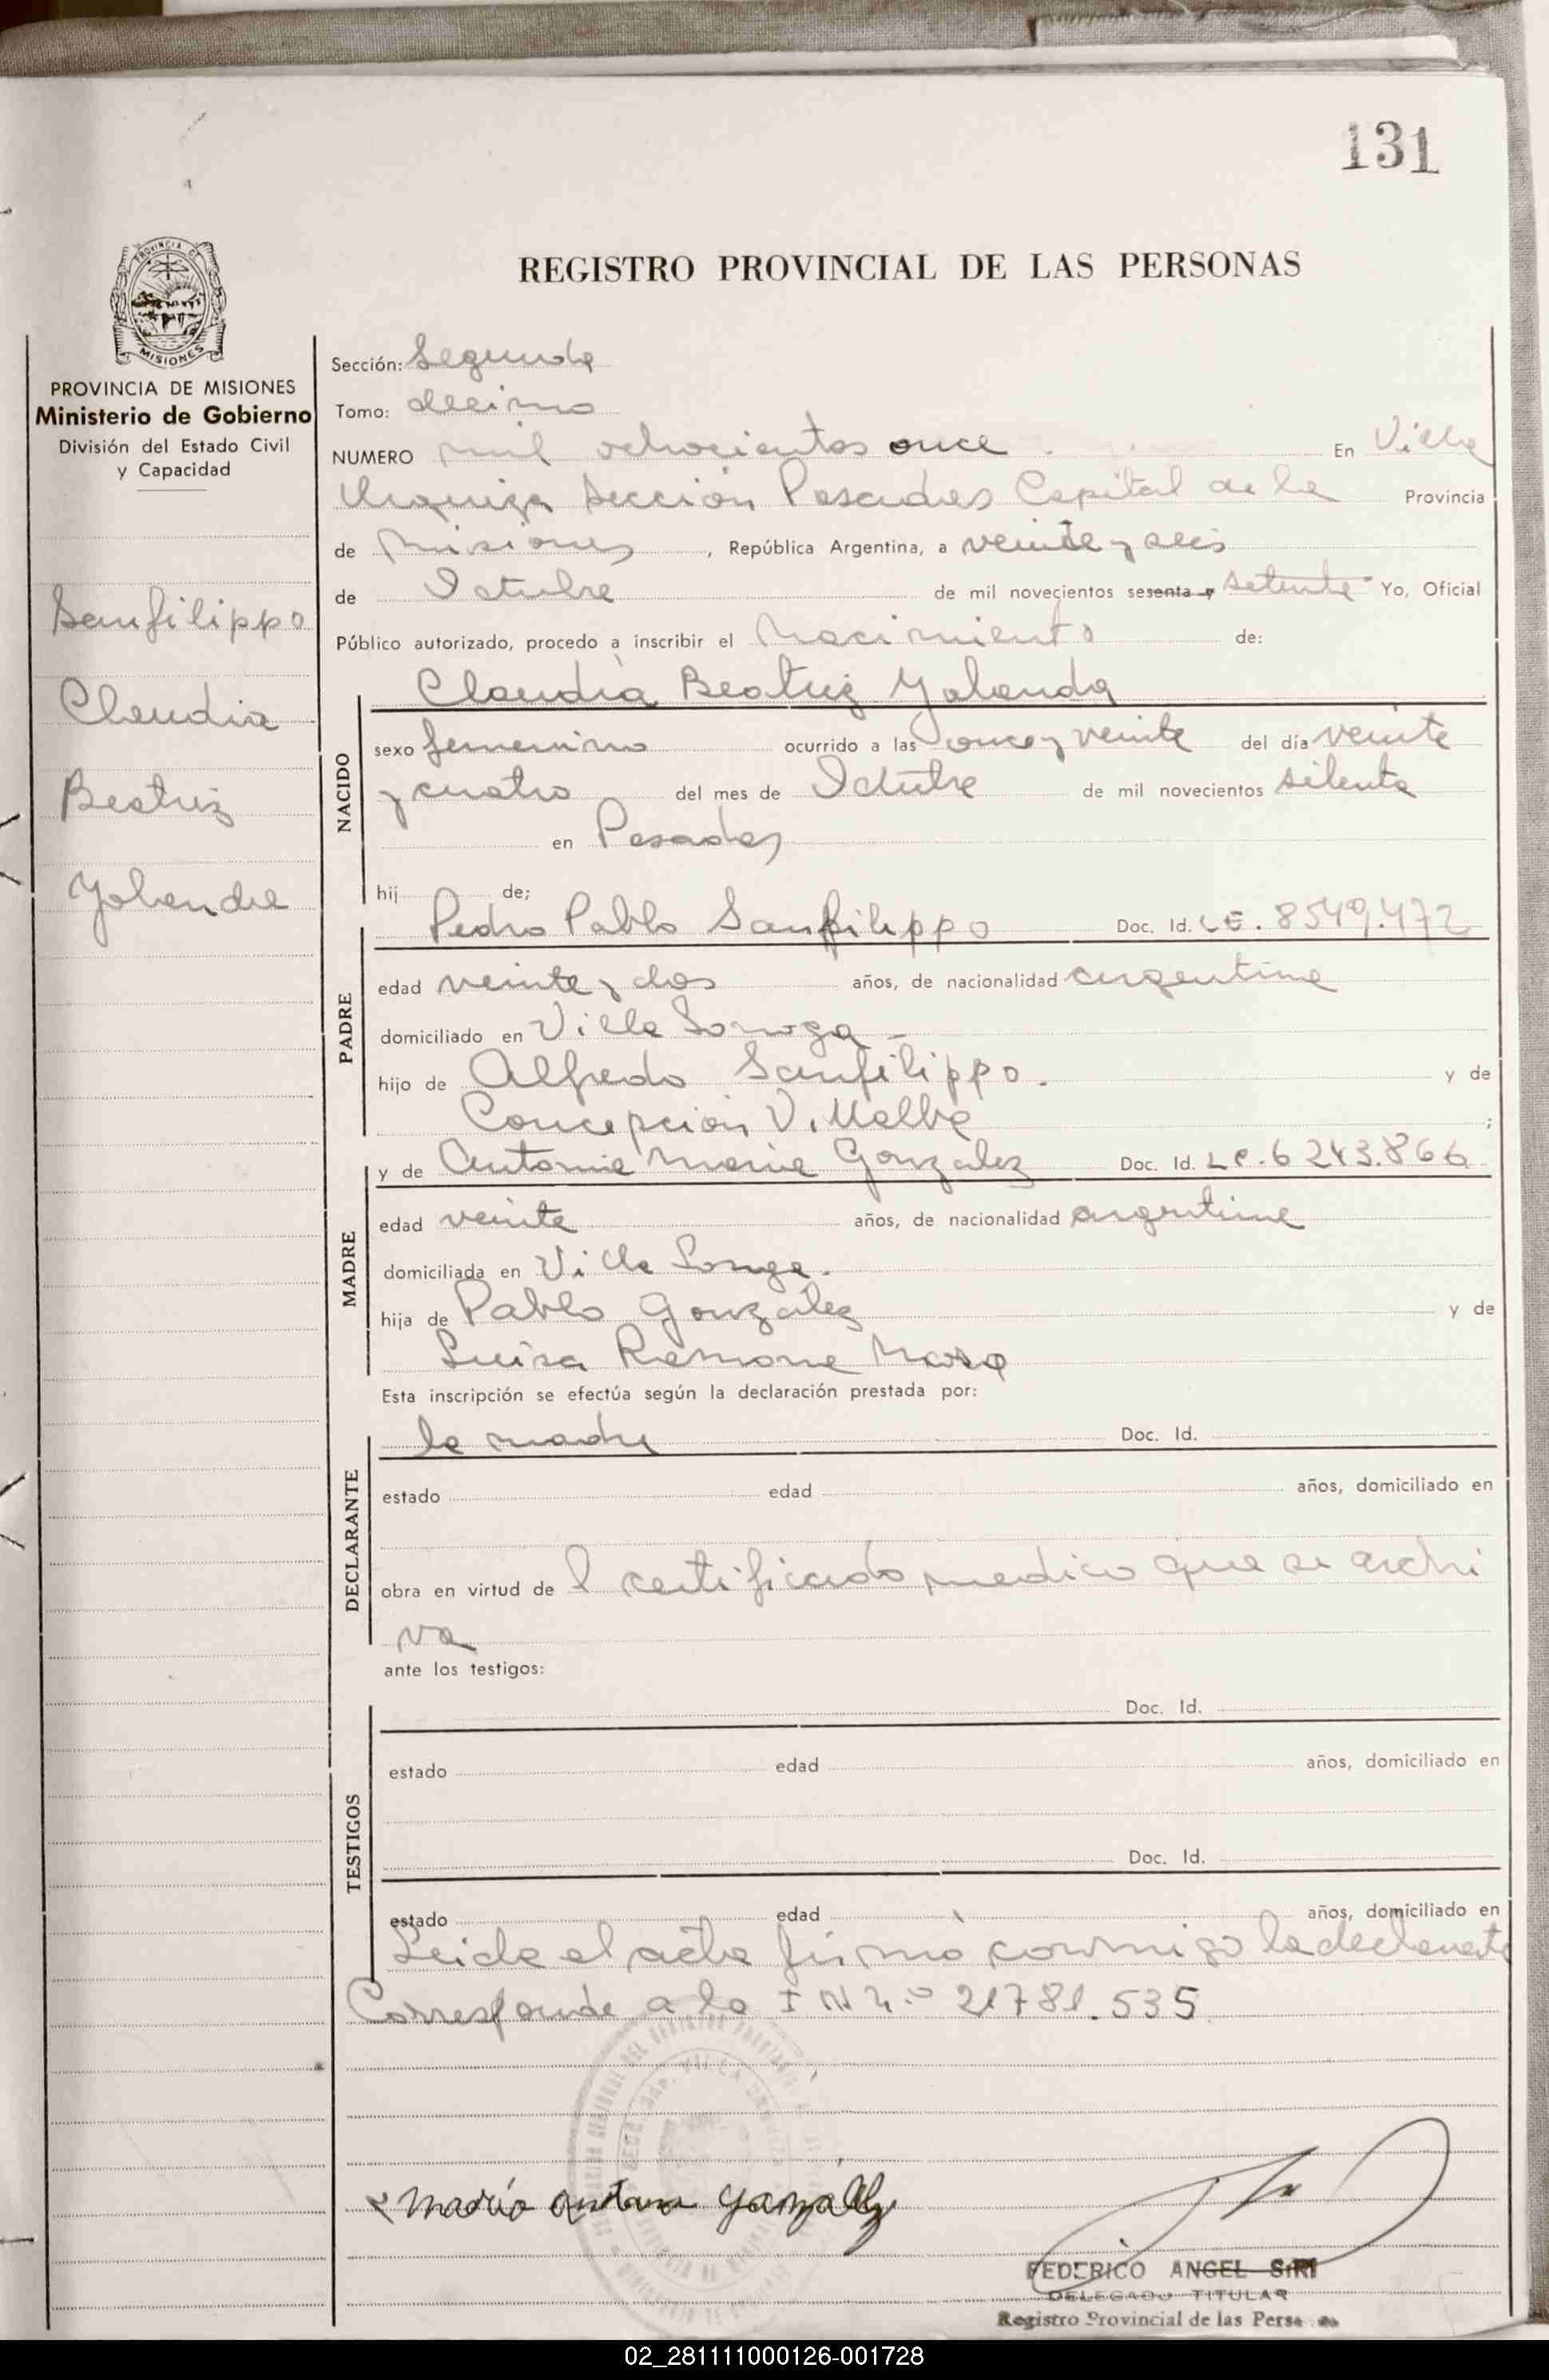 131
PROVINCIA DE
MISIONES
REGISTRO PROVINCIAL DE LAS PERSONAS
PROVINCIA DE MISIONES
Ministerio de Gobierno
División del Estado Civil
y Capacidad
Sanfilippo
Claudia
Beatriz
Yolanda
Sección: Segunda
Tomo: decimo
NUMERO mil ochocientos once En Villa
Urquiza Sección Posadas Capital de la Provincia
de Misiones, República Argentina, a veinte y seis
de Octubre de mil novecientos sesenta y setenta Yo, Oficial
Público autorizado, procedo a inscribir el Nacimiento de:
Claudia Beatriz Yolanda
NACIDO
sexo femenino ocurrido a las once y veinte del día veinte
y cuatro del mes de Octubre de mil novecientos setenta
en Posadas
hij de;
Pedro Pablo Sanfilippo Doc. Id. LE. 8549.472
PADRE
edad veinte y dos años, de nacionalidad argentina
domiciliado en Villa
hijo de Alfredo Sanfilippo. y de
Concepción Villalba ;
y de Antonia Maria González Doc. Id. LC. 6243.866
MADRE
edad veinte años, de nacionalidad argentina
domiciliada en Villa
hija de Pablo González y de
Luisa Ramona
Esta inscripción se efectúa según la declaración prestada por:
la madre Doc. Id.
DECLARANTE
estado edad años, domiciliado en
obra en virtud de l certificado medico que se archi
va
ante los testigos:
Doc. Id.
TESTIGOS
estado edad años, domiciliado en
Doc. Id.
estado edad años, domiciliado en
Leida el acta firmó conmigo la declarante
Corresponde a la I N n.º 21781.535
Maria Antonia González
FEDERICO ANGEL SIRI
DELEGADO TITULAR
Registro Provincial de las Perso as
02_281111000126-001728